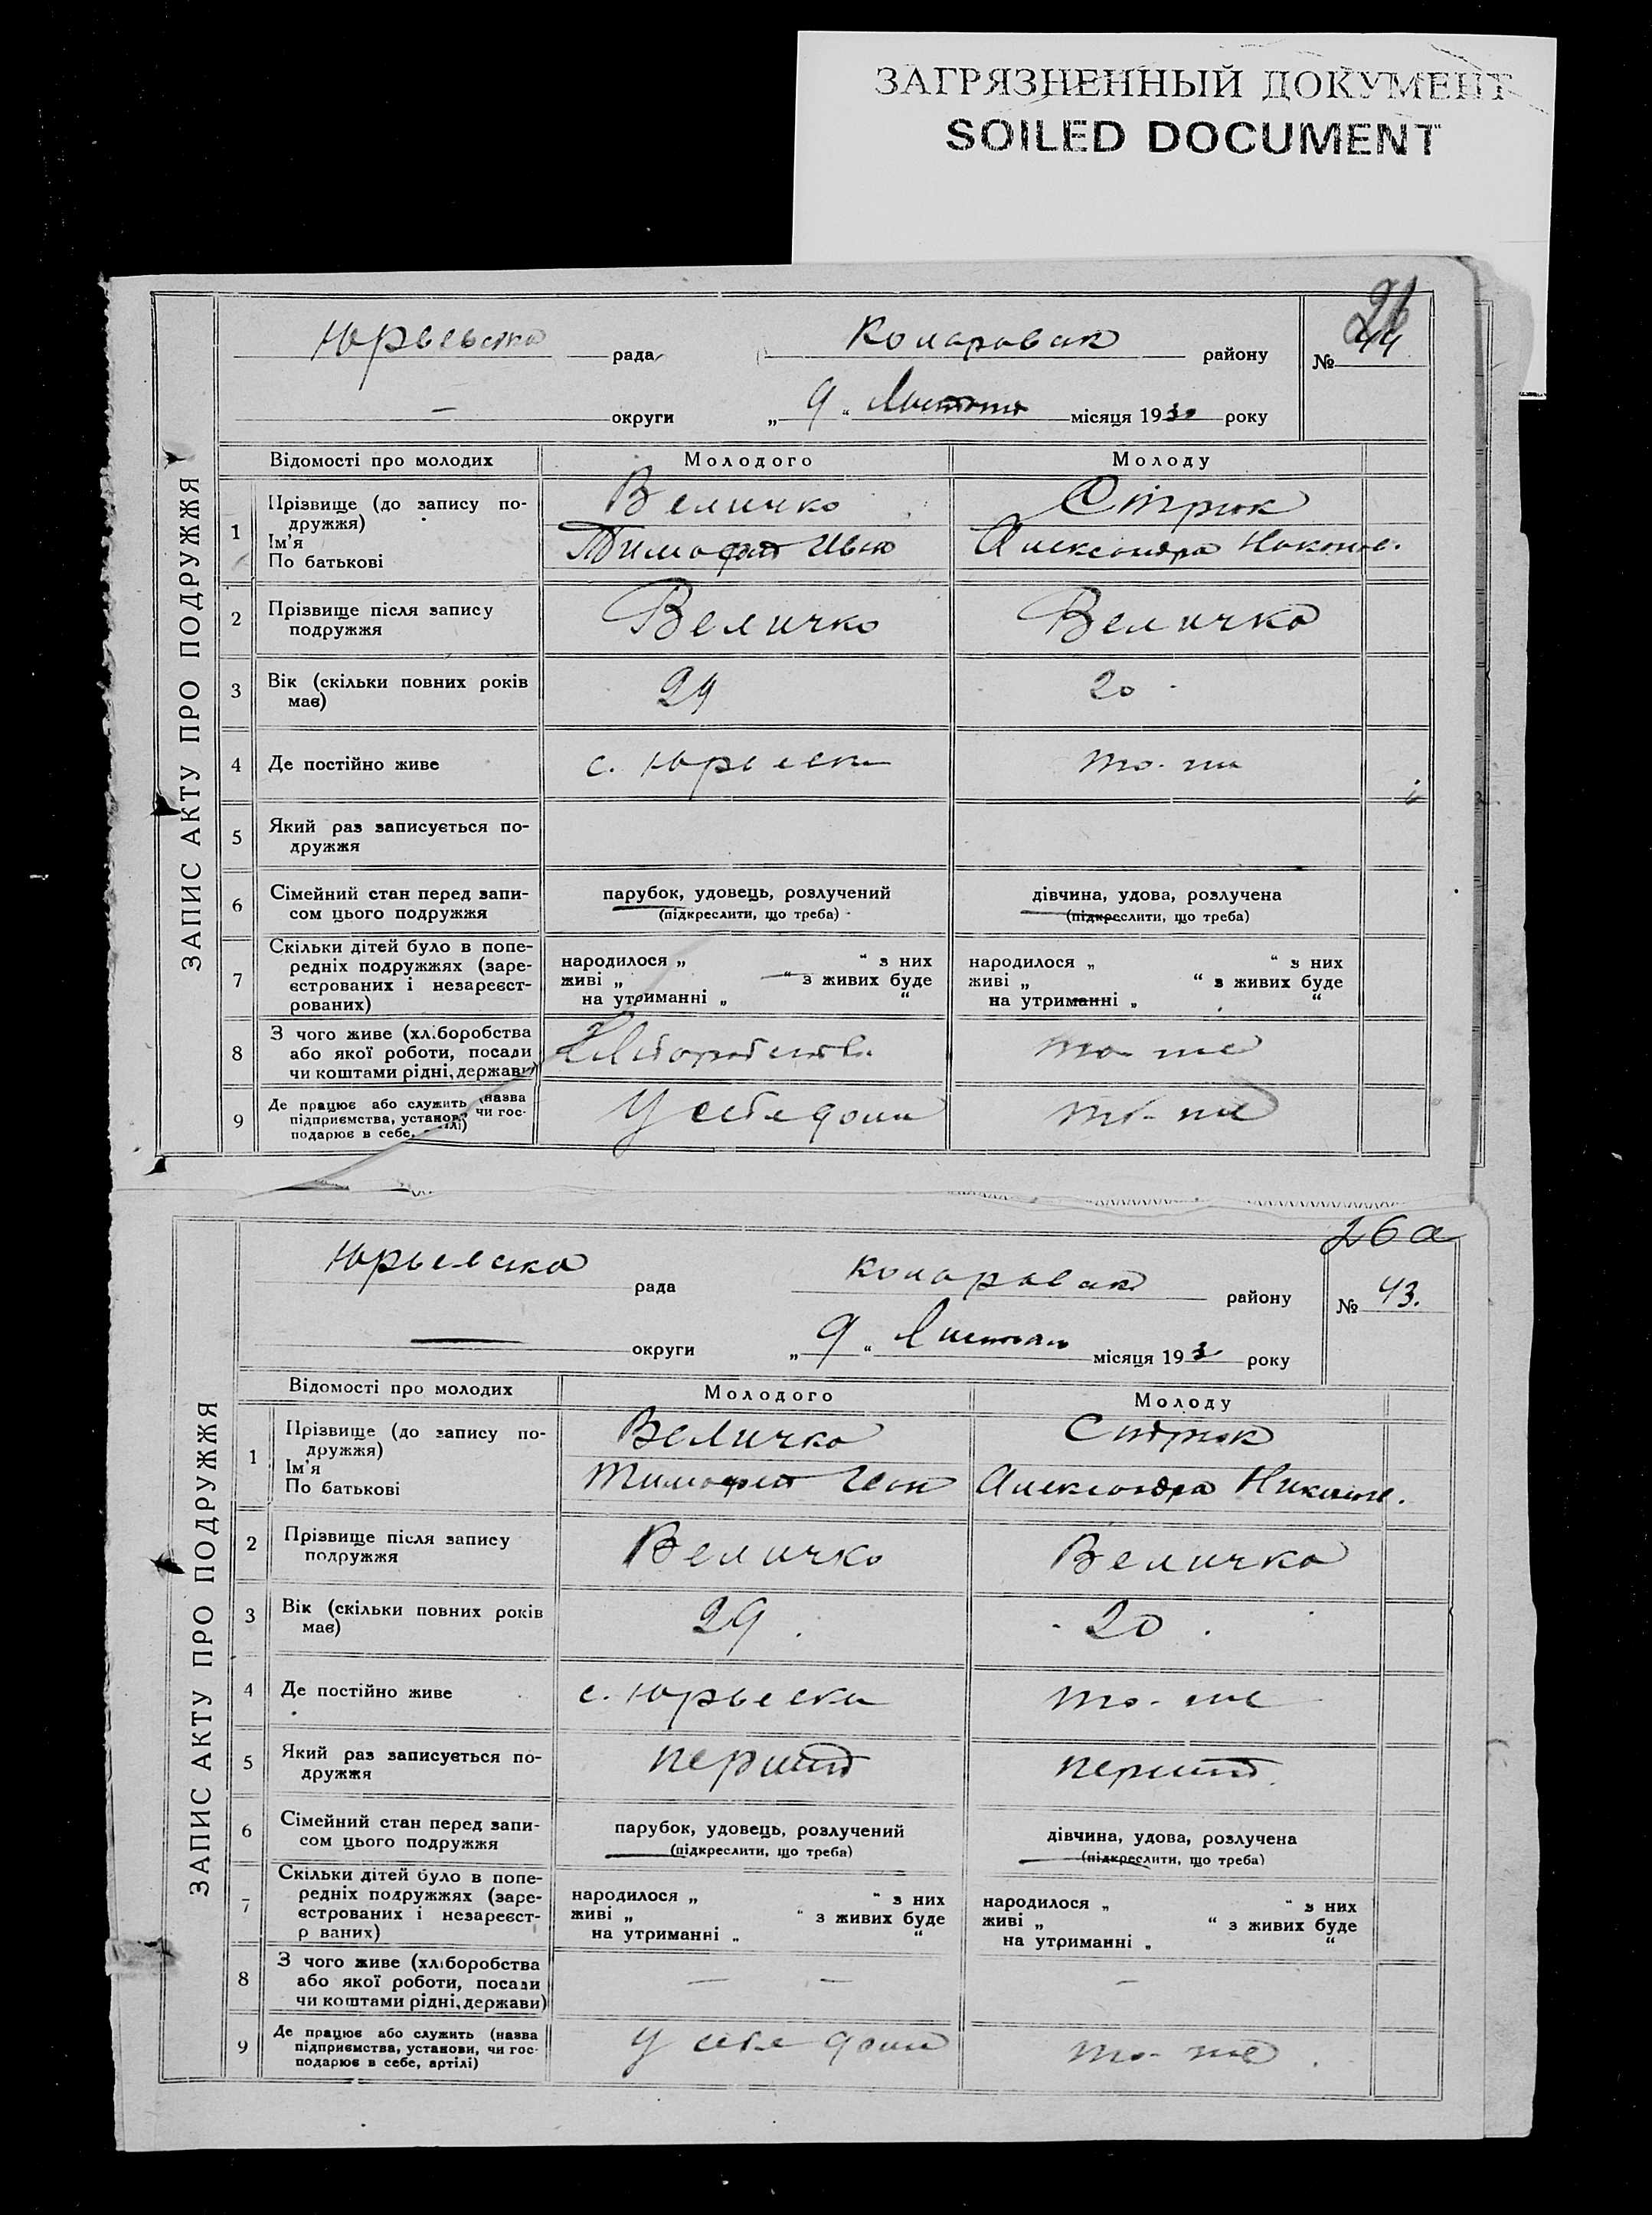 ЗАГРЯЗНЕННЫЙ ДОКУМЕНТ
SOILED DOCUMENT
26
44
ЗАПИС АКТУ ПРО ПОДРУЖЖЯ
Юрьевська рада района
№
округи „ 9 “ місяця 1930 року
Відомості про молодих Молодого Молоду
1 Прізвище (до запису по-
дружжя)
Ім'я
По батькові
Величко
Тимофій
Александра
2 Прізвище після запису
подружжя
Величко Величко
3 Вік (скільки повних років
має)
29 20
4 Де постійно живе с. то-же
5 Який раз записується по-
дружжя
6 Сімейний стан перед запи-
сом цього подружжя
парубок, удовець, розлучений
(підкреслити, що треба)
дівчина, удова, розлучена
(підкреслити, що треба)
7 Скільки дітей було в попе-
редніх подружжях (заре-
єстрованих і незареєст-
рованих)
народилося „ “ з них
живі „ “ з живих буде
на утриманні „ “
народилося „ “ з них
живі „ “ з живих буде
на утриманні „ “
8 З чого живе (хліборобства
або якої роботи, посади
чи коштами рідні, держави)
то-же
9 Де працює або служить (назва
підприємства, установ чи гос-
подарює в себе,
У себе дома то-же
26а
ЗАПИС АКТУ ПРО ПОДРУЖЖЯ
рада району
№ 43.
округи „ 9 “ місяця 193 року
Відомості про молодих Молодого Молоду
1 Прізвище (до запису по-
дружжя)
Ім'я
По батькові
Величко
Тимофій
Александра
2 Прізвище після запису
подружжя
Величко Величко
3 Вік (скільки повних років
має)
29. 20.
4 Де постійно живе с. то-же
5 Який раз записується по-
дружжя
перший перший
6 Сімейний стан перед запи-
сом цього подружжя
парубок, удовець, розлучений
(підкреслити, що треба)
дівчина, удова, розлучена
(підкреслити, що треба)
7 Скільки дітей було в попе-
редніх подружжях (заре-
єстрованих і незареєст-
р ваних)
народилося „ “ з них
живі „ “ з живих буде
на утриманні „ “
народилося „ “ з них
живі „ “ з живих буде
на утриманні „ “
8 З чого живе (хліборобства
або якої роботи, посади
чи коштами рідні, держави)
— — —
9 Де працює або служить (назва
підприємства, установи, чи гос-
подарює в себе, артілі)
У себе дома то-же.